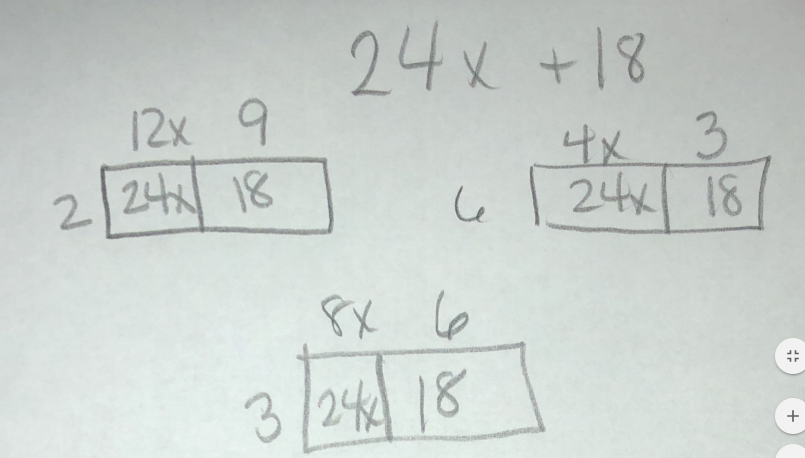 24x + 18
12x 9
2 24x 18
4x 3
6 24x 18
8x 6
3 24x 18